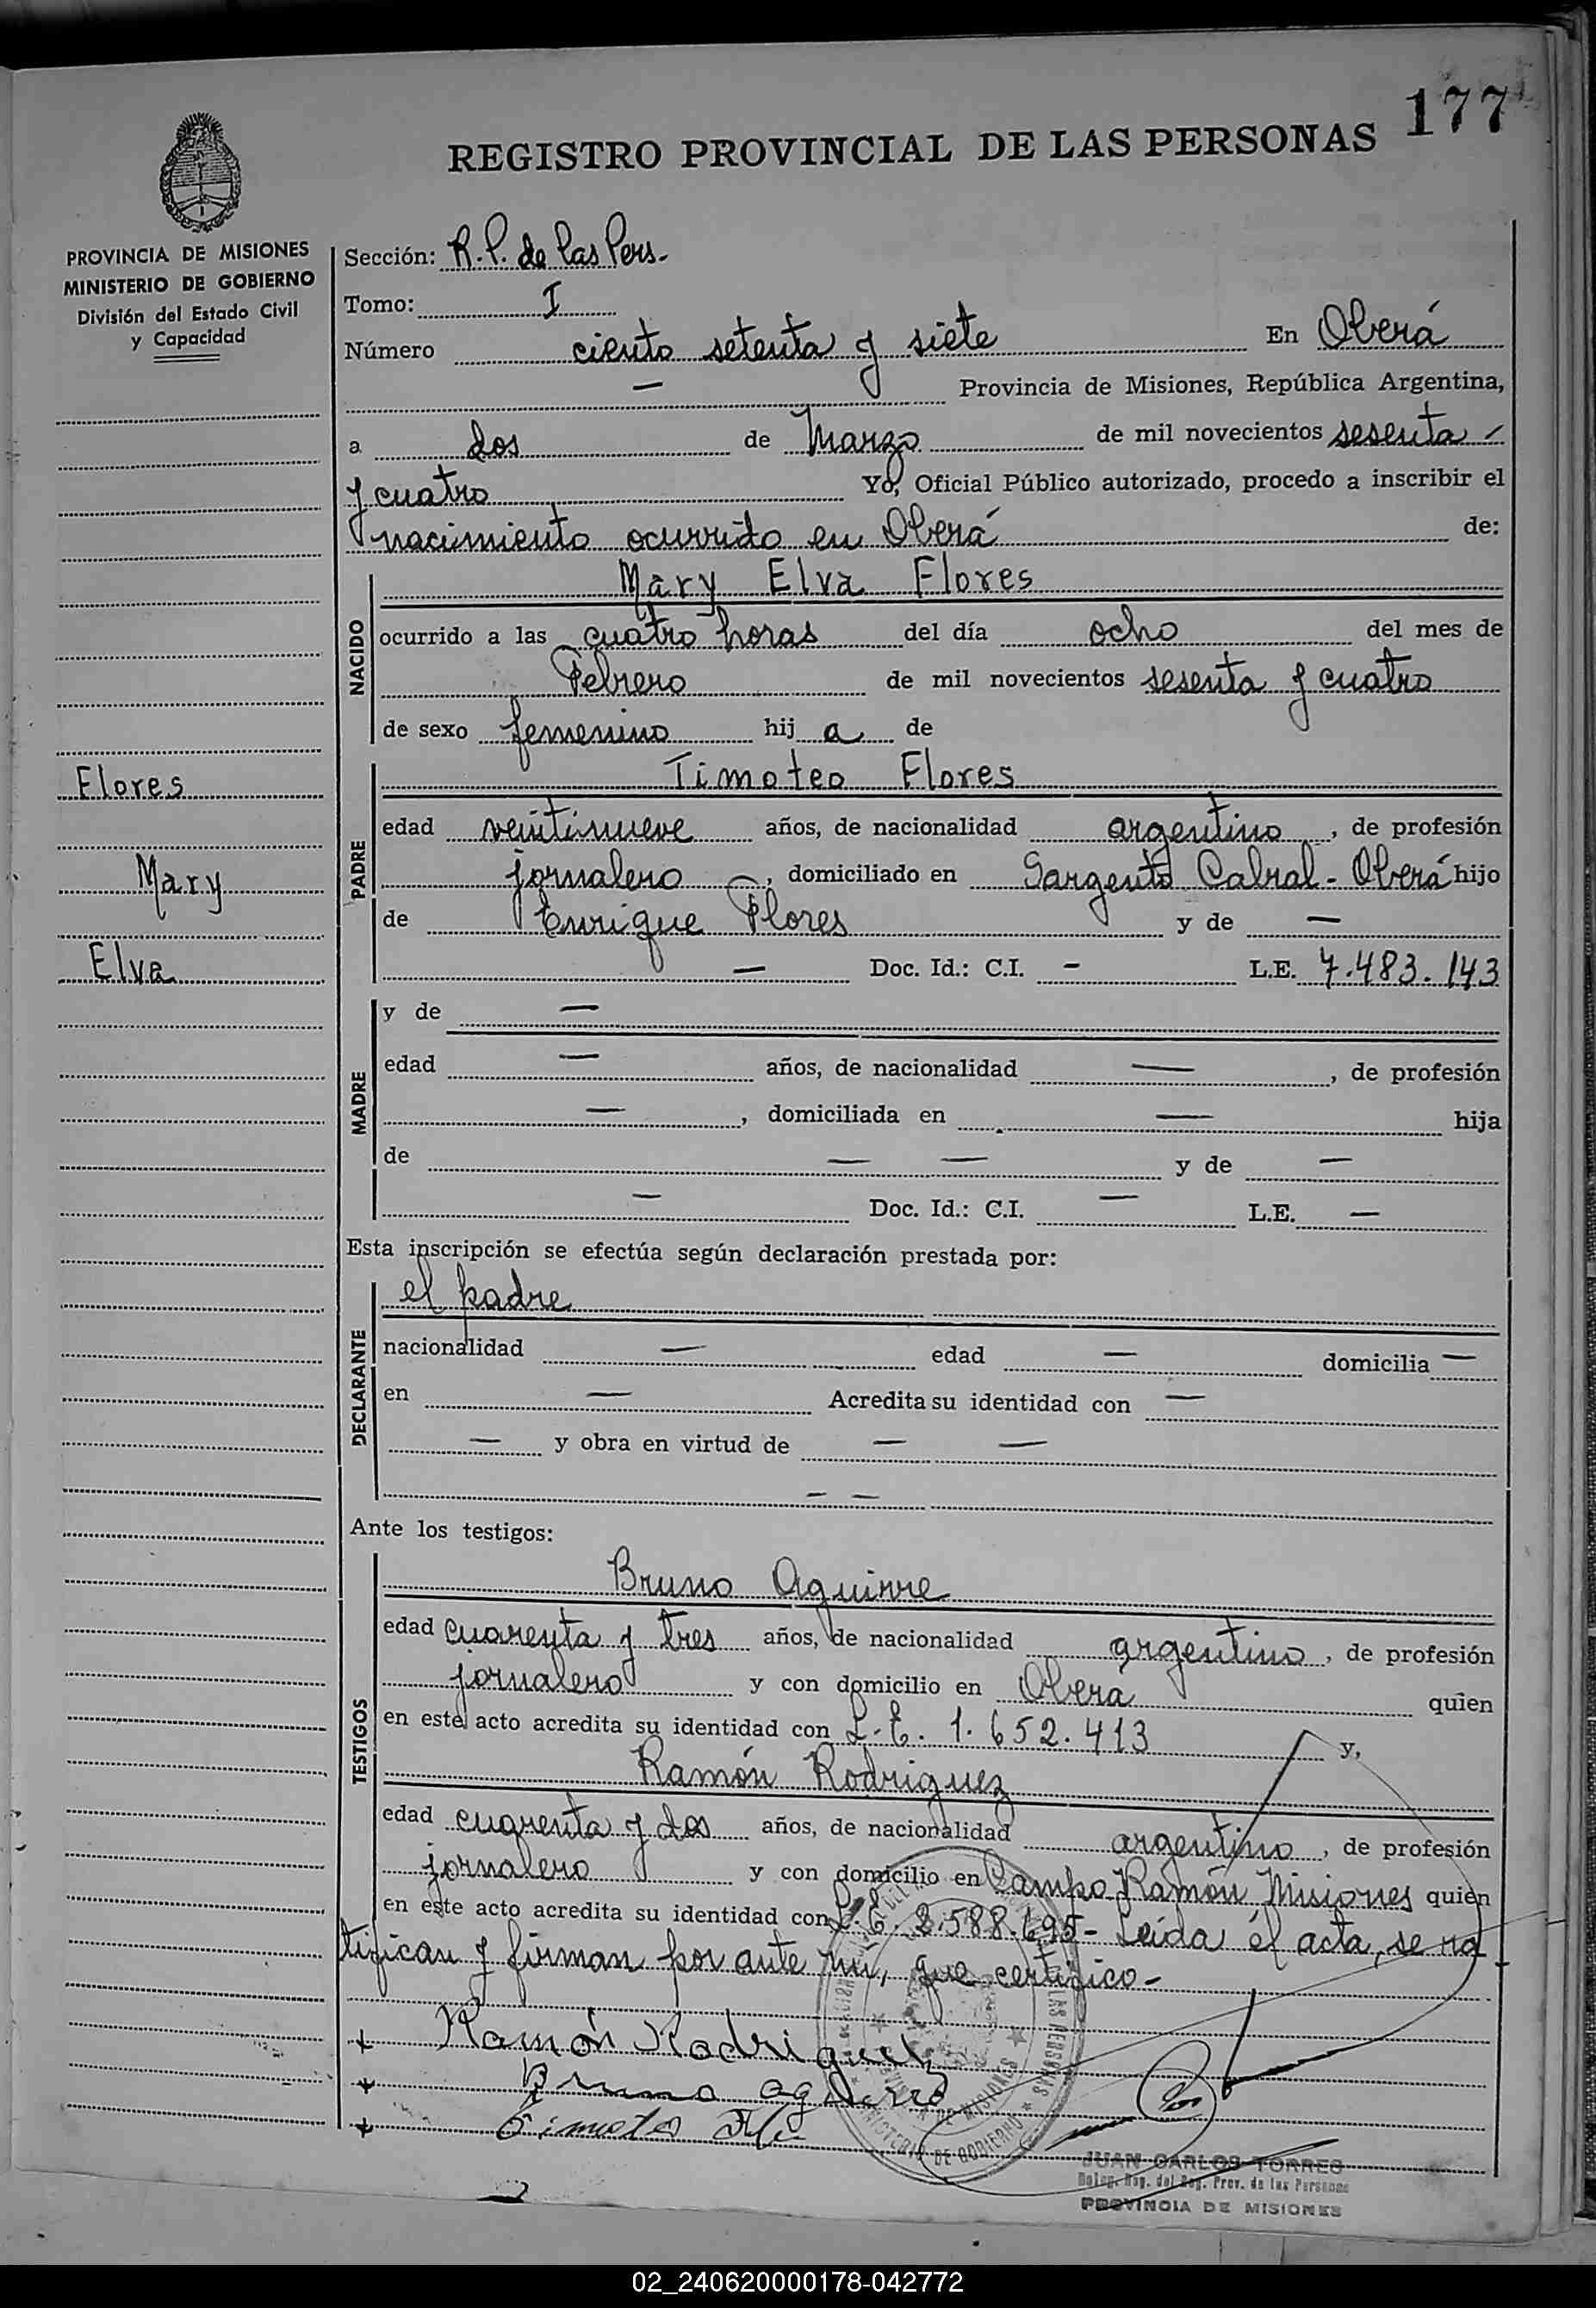 177
REGISTRO PROVINCIAL DE LAS PERSONAS
PROVINCIA DE MISIONES
MINISTERIO DE GOBIERNO
División del Estado Civil
y Capacidad
Flores
Mary
Elva
Sección: R.P. de las Pers.
Tomo: I
Número ciento setenta y siete En Oberá
— Provincia de Misiones, República Argentina,
a dos de Marzo de mil novecientos sesenta -
y cuatro Yo, Oficial Público autorizado, procedo a inscribir el
nacimiento ocurrido en Oberá de:
NACIDO
Mary Elva Flores
ocurrido a las cuatro horas del día ocho del mes de
Febrero de mil novecientos sesenta y cuatro
de sexo femenino hij a de
PADRE
Timoteo Flores
edad veintinueve años, de nacionalidad argentino, de profesión
jornalero, domiciliado en Sargento Cabral - Oberá hijo
de Enrique Flores y de —
— Doc. Id.: C.I. - L.E. 7.483.143
MADRE
y de —
edad — años, de nacionalidad —, de profesión
—, domiciliada en — hija
de — — y de —
— Doc. Id.: C.I. — L.E. —
Esta inscripción se efectúa según declaración prestada por:
DECLARANTE
el padre
nacionalidad — edad — domicilia —
en — Acredita su identidad con —
— y obra en virtud de — —
— —
Ante los testigos:
TESTIGOS
Bruno Aguirre
edad cuarenta y tres años, de nacionalidad argentino, de profesión
jornalero y con domicilio en Oberá quien
en este acto acredita su identidad con L.E. 1.652.413 y,
Ramón Rodriguez
edad cuarenta y dos años, de nacionalidad argentino, de profesión
jornalero y con domicilio en Campo Ramón Misiones quien
en este acto acredita su identidad con L.E. 2.588.695- Leída el acta, se ra
tifican y firman por ante mi, que certifico-
Ramón Rodriguez
Bruno aguirre
Timoteo
JUAN CARLOS TORRES
Reg. Prov. de las Personas
PROVINCIA DE MISIONES
02_240620000178-042772